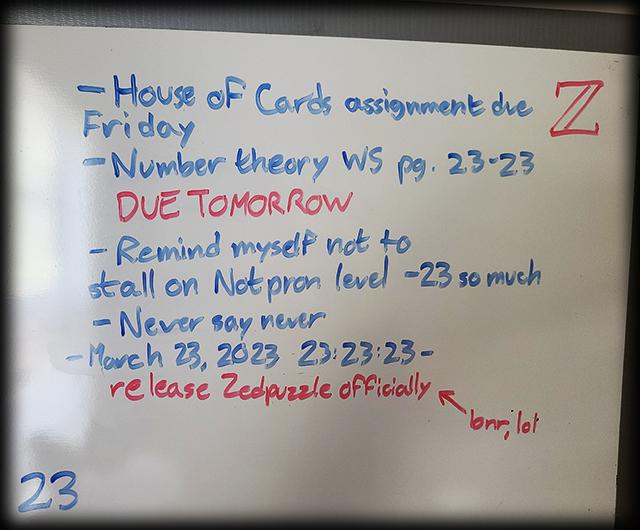 - House of Cards assignment due
Friday
Z
- Number theory WS pg. 23-23
DUE TOMORROW
- Remind myself not to
stall on Notpron level -23 so much
- Never say never
- March 23, 2023 23:23:23-
release Zedpuzzle officially
bnr, lol
23